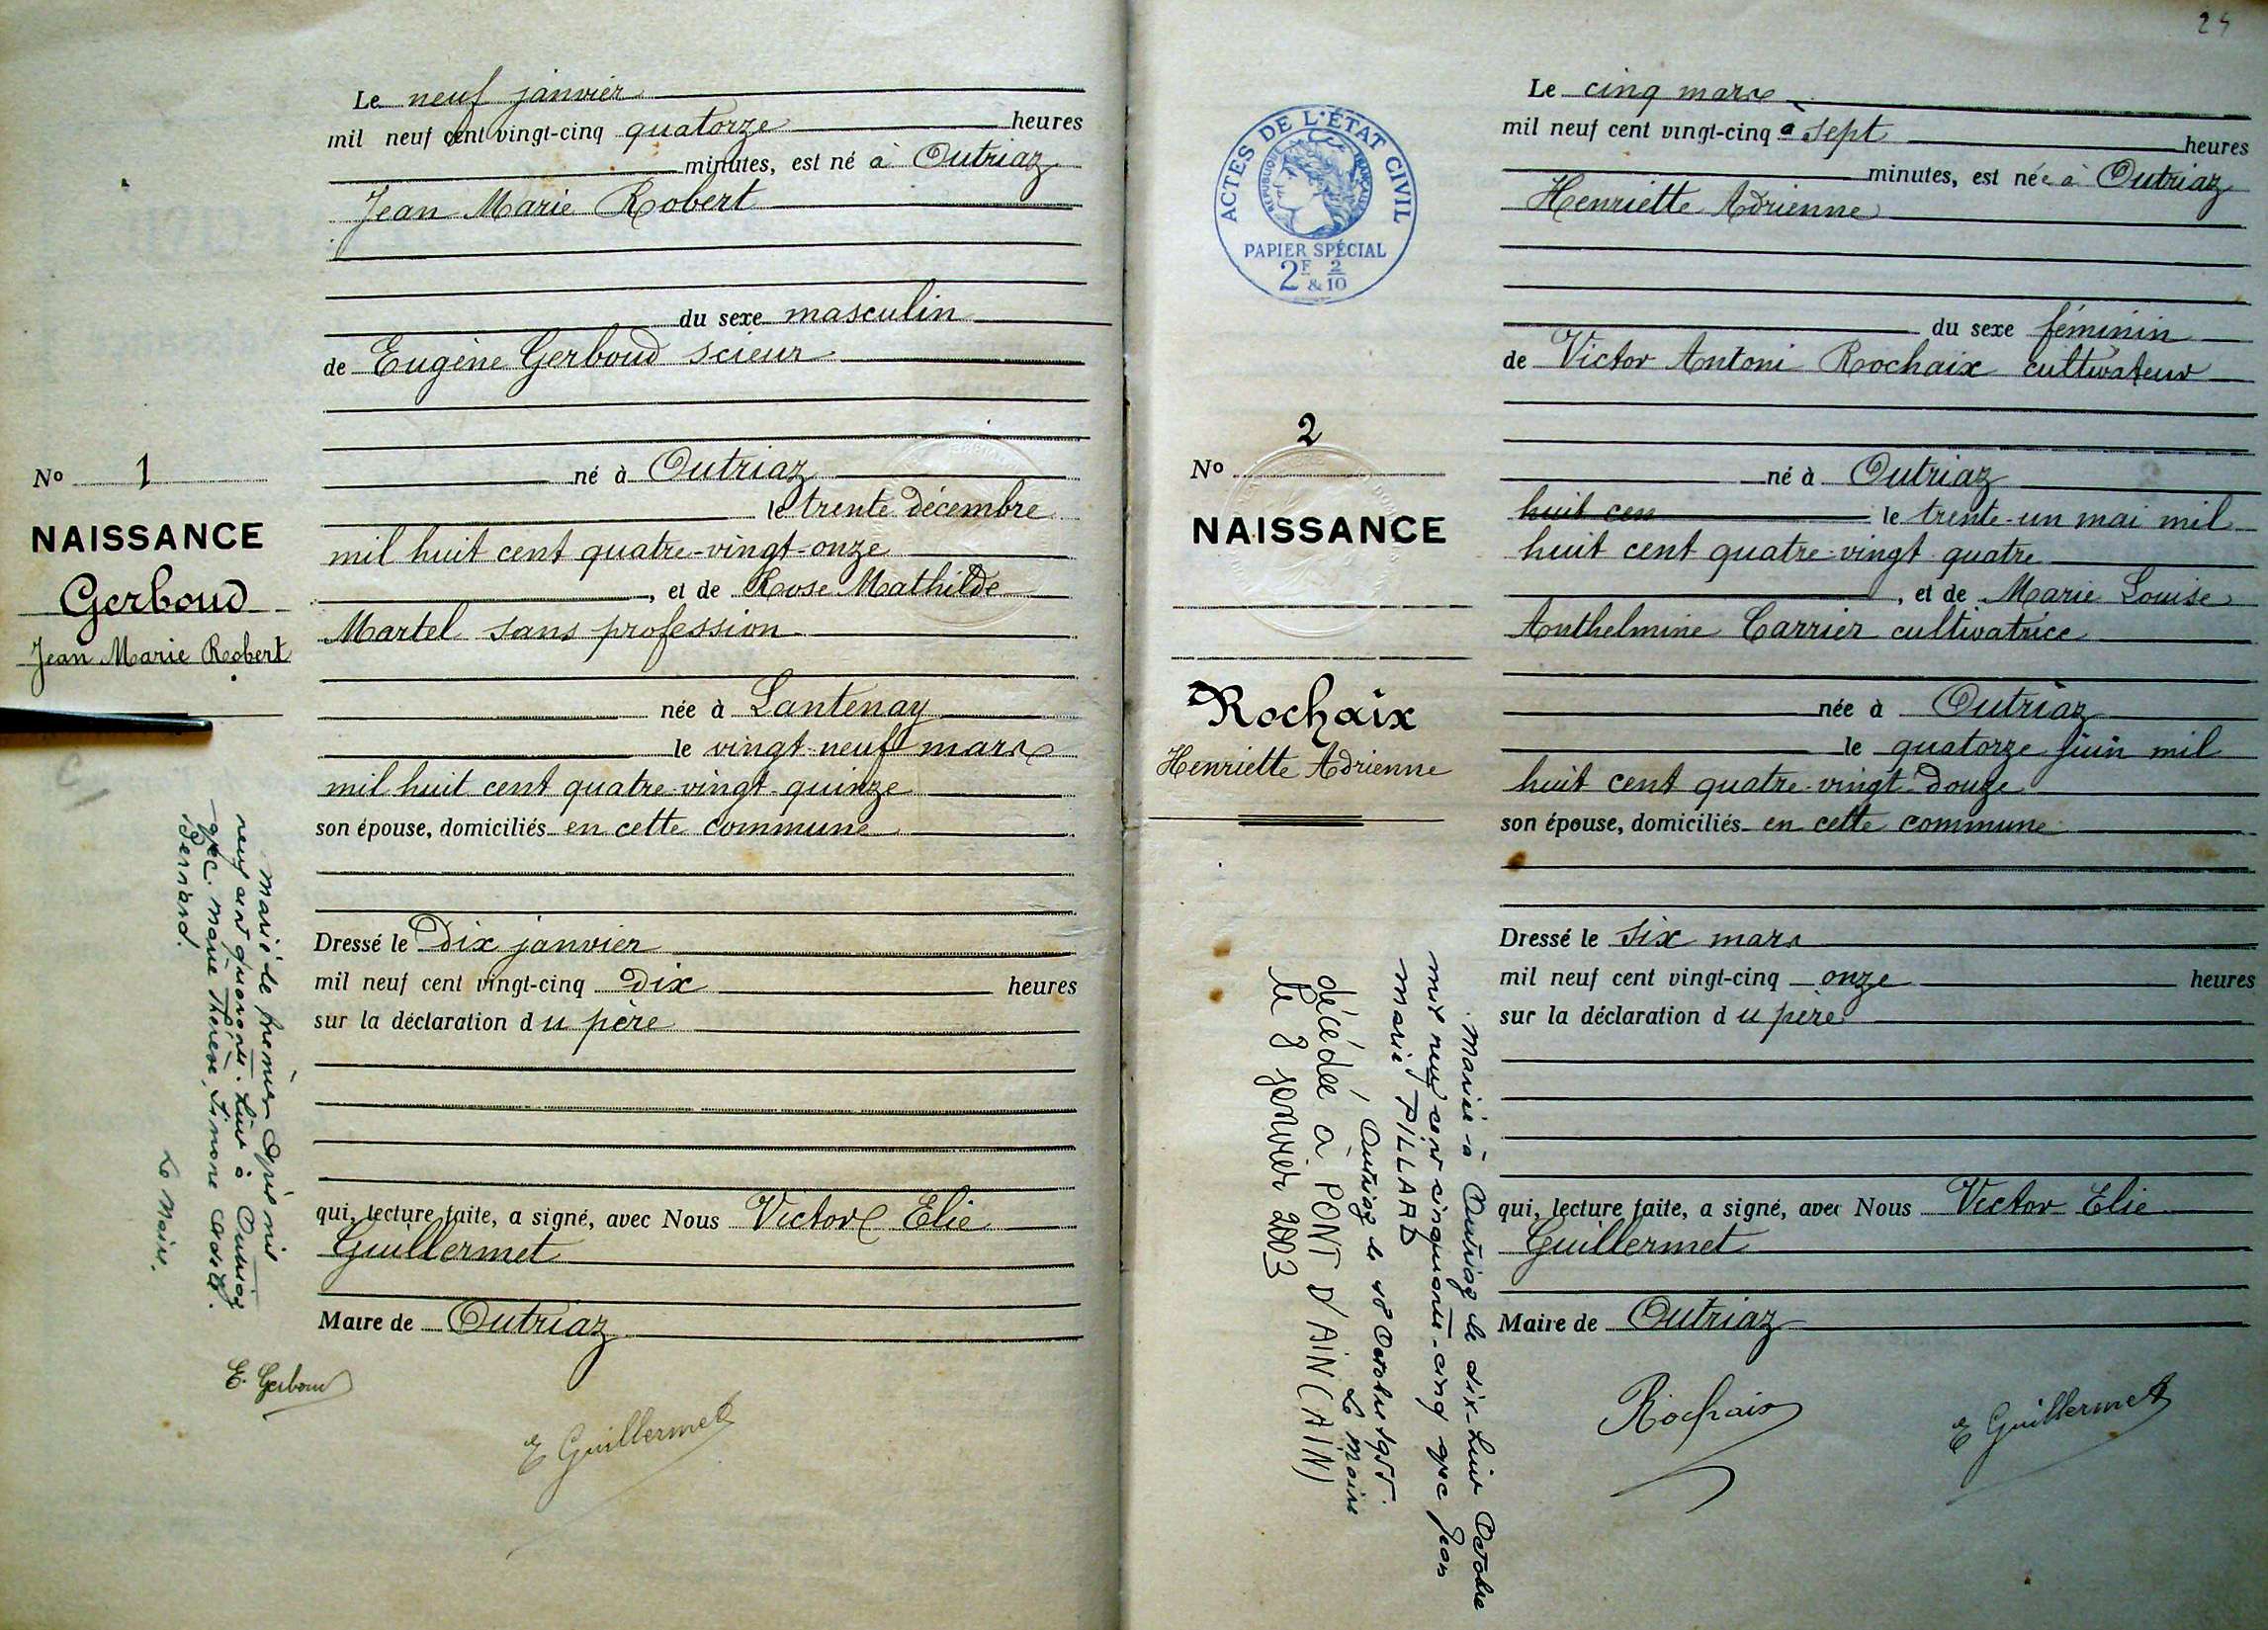 Le neuf janvier
mil neuf cent vingt-cinq quatorze heures
minutes, est né à Outriaz
Jean Marie Robert
du sexe masculin
de Eugène Gerboud scieur
né à Outriaz
le trente décembre
mil huit cent quatre-vingt-onze
, et de Rose Mathilde
Martel sans profession
née à Lantenay
le vingt-neuf mars
mil huit cent quatre-vingt-quinze
son épouse, domiciliés en cette commune
Dressé le dix janvier
mil neuf cent vingt-cinq dix heures
sur la déclaration du père
qui, lecture faite, a signé, avec Nous Victor Elie
Guillermet
Maire de Outriaz
E. Gerboud
E Guillermet
No 1
NAISSANCE
Gerboud
Jean Marie Robert
marié le premier mil
neuf cent quarante-huit à Outriaz
avec Marie Thérèse, Simone
Bernard.
Le Maire.
24
ACTES DE L'ÉTAT CIVIL
RÉPUBLIQUE FRANÇAISE
PAPIER SPÉCIAL
2F & 2/10
No 2
NAISSANCE
Rochaix
Henriette Adrienne
Le cinq mars
mil neuf cent vingt-cinq à sept heures
minutes, est née à Outriaz
Henriette Adrienne
du sexe féminin
de Victor Antoni Rochaix cultivateur
né à Outriaz
huit cen le trente-un mai mil
huit cent quatre-vingt-quatre
, et de Marie Louise
Anthelmine Carrier cultivatrice
née à Outriaz
le quatorze juin mil
huit cent quatre-vingt-douze
son épouse, domiciliés en cette commune
Dressé le six mars
mil neuf cent vingt-cinq onze heures
sur la déclaration du père
qui, lecture faite, a signé, avec Nous Victor Elie
Guillermet
Maire de Outriaz
Rochaix
E Guillermet
Mariée à Outriaz le dix-huit Octobre
mil neuf cent cinquante-cinq avec Jean
Marie PILLARD
Outriaz le 18 Octobre 1955.
Le Maire
décédée à PONT D'AIN (AIN)
le 8 janvier 2003